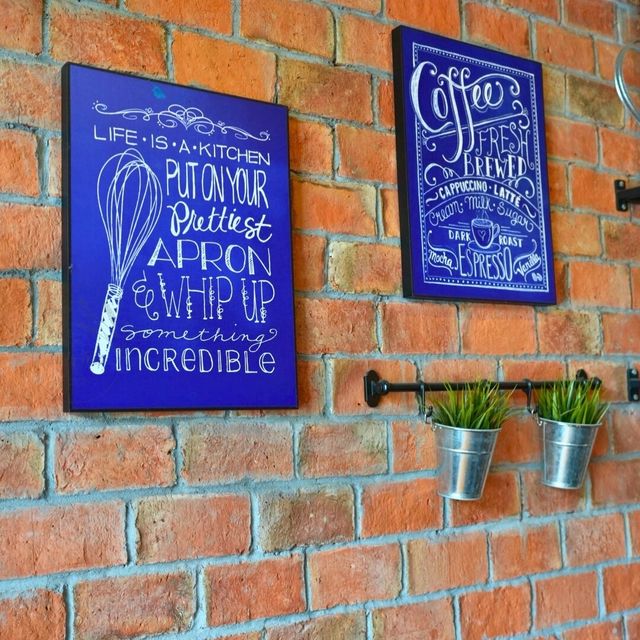 LIFE·IS·A·KITCHEN
PUT ON YOUR
Prettiest
APRON
& WHIP UP
something
INCREDIBLE
Coffee
FRESH
BREWED
CAPPUCCINO·LATTE
Cream·Milk·Sugar
DARK ROAST
Mocha ESPRESSO Vanilla